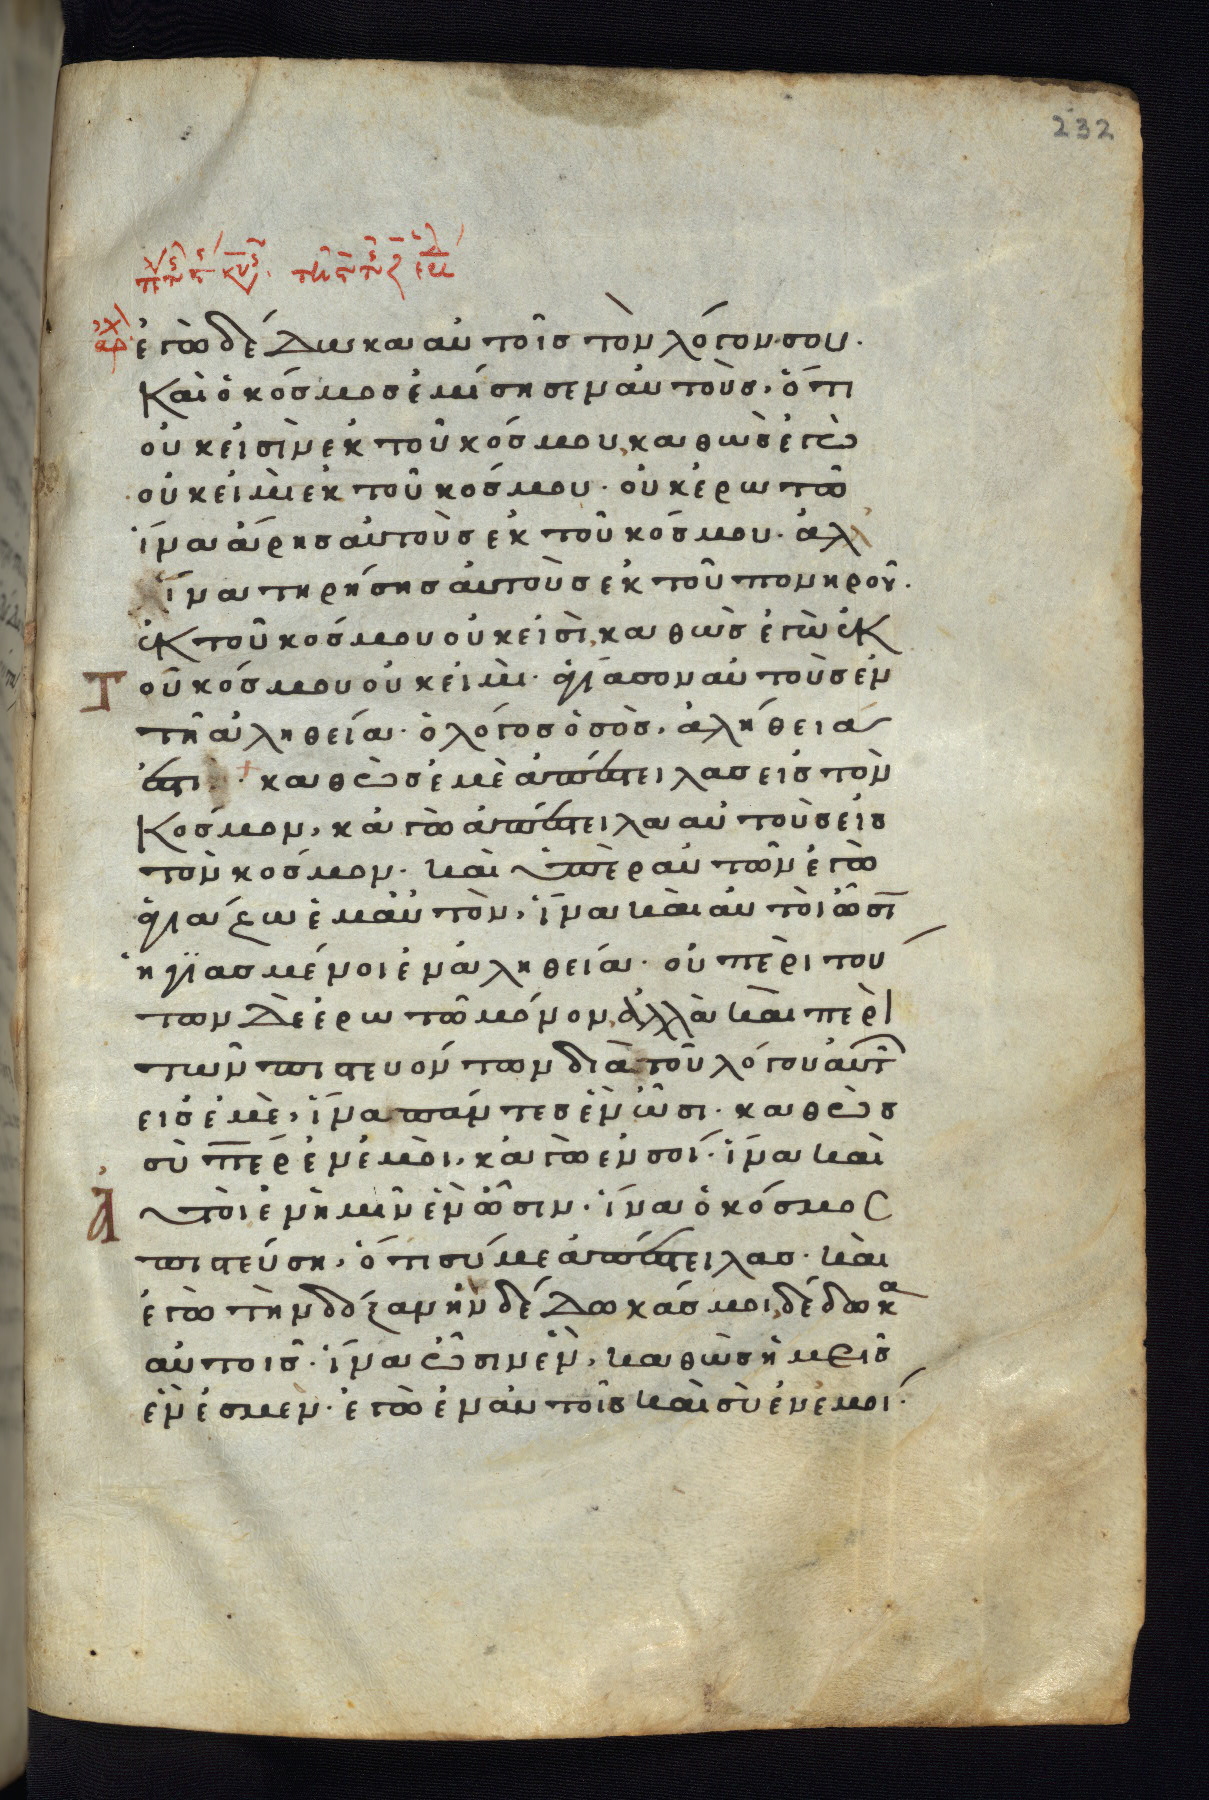 232
ἐγὼ δέδωκα αὐτοῖς τὸν λόγον σου.
Καὶ ὁ κόσμος ἐμίσησεν αὐτοὺς, ὅτι
οὐκ εἰσὶν ἐκ τοῦ κόσμου, καθὼς ἐγὼ
οὐκ εἰμὶ ἐκ τοῦ κόσμου. οὐκ ἐρωτῶ
ἵνα ἄρης αὐτοὺς ἐκ τοῦ κόσμου. ἀλλ'
ἵνα τηρήσης αὐτοὺς ἐκ τοῦ πονηροῦ.
ἐκ τοῦ κόσμου οὐκ εἰσὶ, καθὼς ἐγὼ ἐκ
Τ
οῦ κόσμου οὐκ εἰμὶ. ἁγίασον αὐτοὺς ἐν
τῆ ἀληθεία. ὁ λόγος ὁ σὸς, ἀλήθεια
ἐστι. καθὼς ἐμὲ ἀπέστειλας εἰς τὸν
Κόσμον, κἀγὼ ἀπέστειλα αὐτοὺς εἰς
τὸν κόσμον. καὶ ὑπὲρ αὐτῶν ἐγὼ
ἁγιάζω ἐμαὐτὸν, ἵνα καὶ αὐτοὶ ὦσῑ
ἡγϊασμένοι ἐν ἀληθεία. οὐ περὶ του
των δὲ ἐρωτῶ μόνον, ἀλλὰ καὶ περὶ
τῶν πιστευόντων διὰ τοῦ λόγου αὐτ
εἰς ἐμὲ, ἵνα πάντες ἓν ὦσι. καθὼς
σὺ π̅ερ ἐν ἐμοὶ, κἀγὼ ἐν σοί. ἵνα καὶ
Ἀ
υτοὶ ἐν ἡμῖν ἓν ὦσιν. ἵνα ὁ κόσμος
πιστεύση, ὅτι σύ με ἀπέστειλας. καὶ
ἐγὼ τὴν δόξαν ἣν δέδωκάς μοι, δέδωκα
αὐτοις. ἵνα ὦσιν ἓν, καθὼς ἡμεῖς
ἓν ἐσμὲν. ἐγὼ ἐν αὐτοῖς καὶ σὺ ἐν ἐμοί.